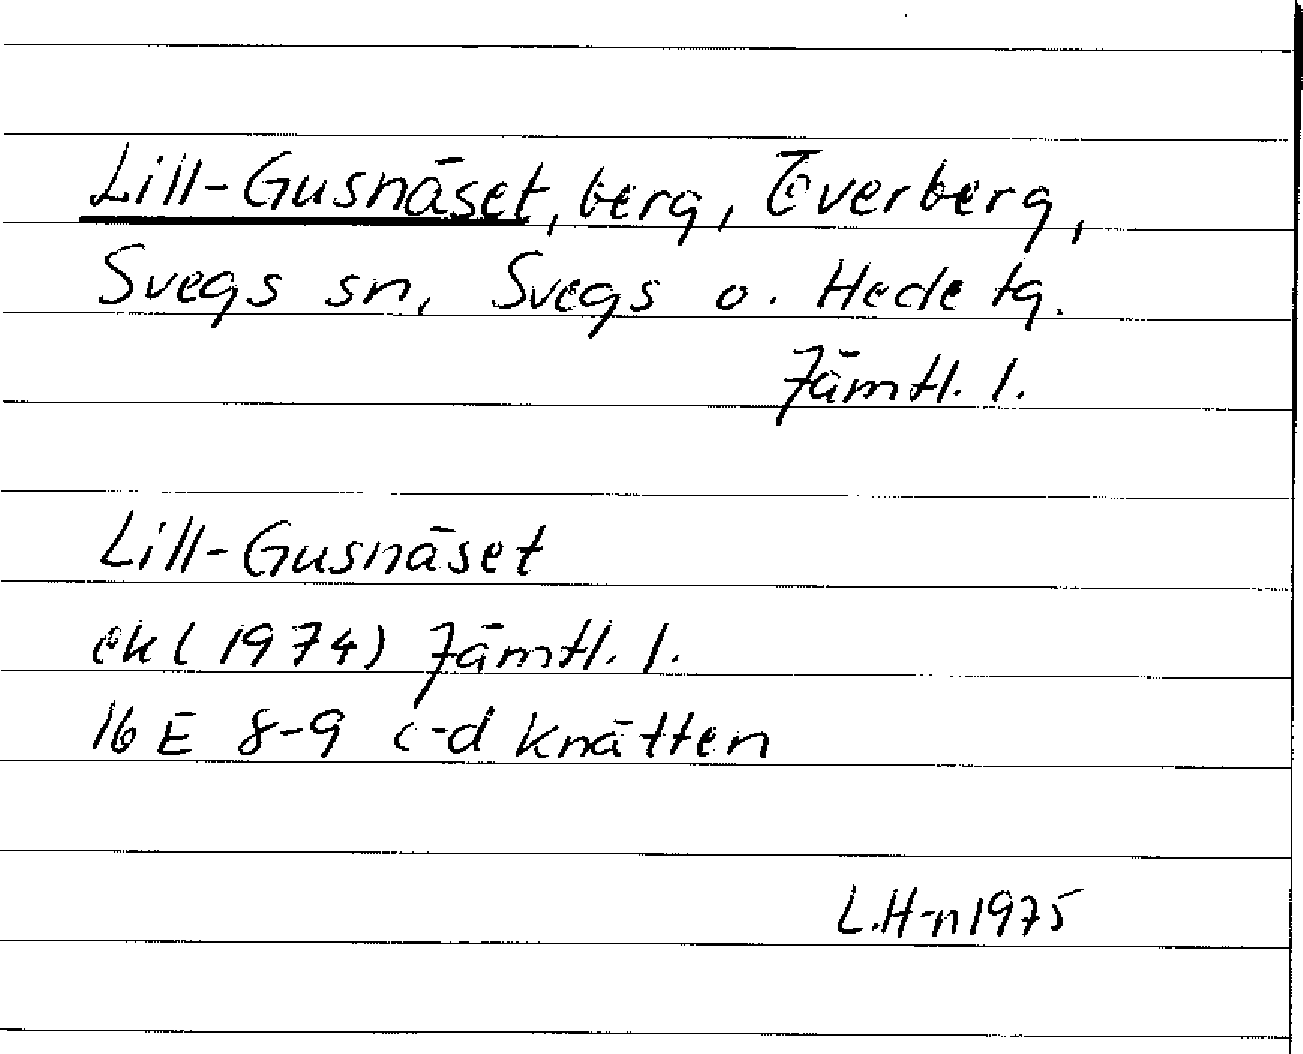 Lill-Gusnäset, berg, Överberg,
Svegs sn, Svegs o. Hede tg.
Jämtl. l.
Lill-Gusnäset
ek (1974) Jämtl. l.
16 E 8-9 c-d Knätten
L.H-n 1975